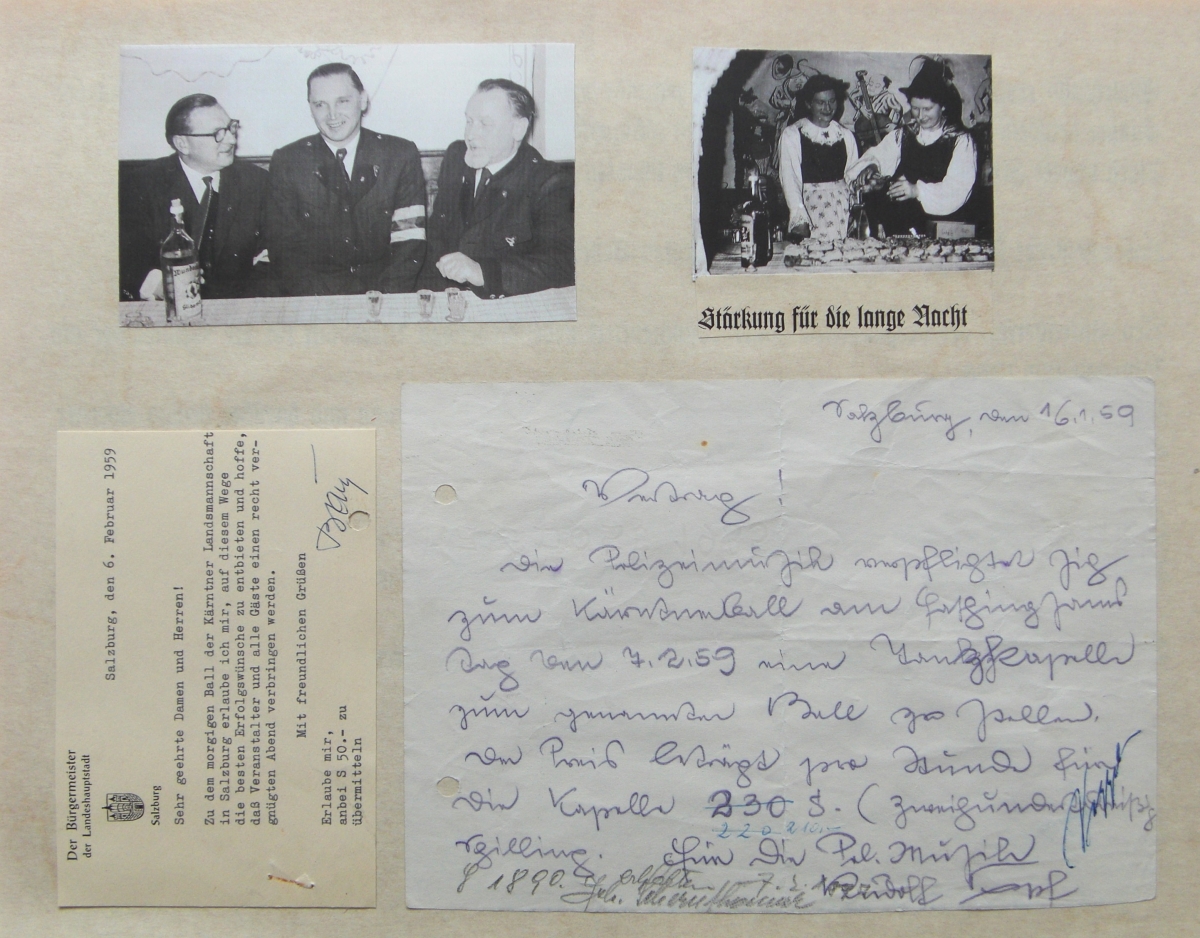 Stärkung für die lange Nacht
Der Bürgermeister
der Landeshauptstadt
Salzburg
Salzburg, den 6. Februar 1959
Sehr geehrte Damen und Herren!
Zu dem morgigen Ball der Kärntner Landsmannschaft
in Salzburg erlaube ich mir, auf diesem Wege
die besten Erfolgswünsche zu entbieten und hoffe,
daß Veranstalter und alle Gäste einen recht ver-
gnügten Abend verbringen werden.
Mit freundlichen Grüßen
Erlaube mir,
anbei S 50.- zu
übermitteln
Salzburg, den 16.1.59
Vertrag!
Die Polizeimusik verpflichtet sich
zum Kärntnerball am Faschingsams
tag den 7.2.59 eine Tanzkapelle
zum genannten Ball zu stellen.
Der Preis beträgt pro Stunde für
die Kapelle 230 S (Zweihundertdreißig
220 210.-
Schilling. Für die Pol. Musik
S 1890.- erhalten 7.2. Rudolf